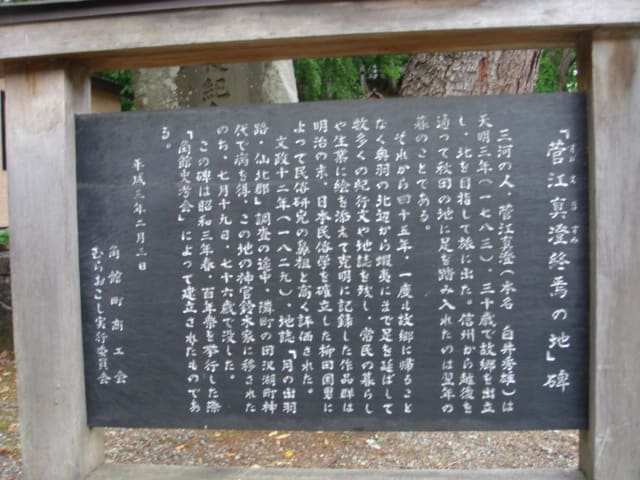 「菅江真澄終焉の地」碑
すがえますみ
三河の人、菅江真澄(本名 白井秀雄)は
天明三年(一七八三)、三十歳で故郷を出立
し、北を目指して旅に出た。信州から越後を
通って秋田の地に足を踏み入れたのは翌年の
暮のことである。
それから四十五年、一度も故郷に帰ること
なく奥羽の北辺から蝦夷にまで足を延ばして
数多くの紀行文や地誌を残し、常民の暮らし
や生業に絵を添えて克明に記録した作品群は
明治の末、日本民俗学を確立した柳田国男に
よって民俗研究の鼻祖と高く評価された。
文政十二年(一八二九)、地誌『月の出羽
路・仙北郡』調査の途中、隣町の田沢湖町神
代で病を得、この地の神官鈴木家に移された
のち、七月十九日、七十六歳で没した。
この碑は昭和三年春、百年祭を挙行した際
「角館史考会」によって建立されたものであ
る。
平成三年二月二日
角館町商工会
むらおこし実行委員会
紀